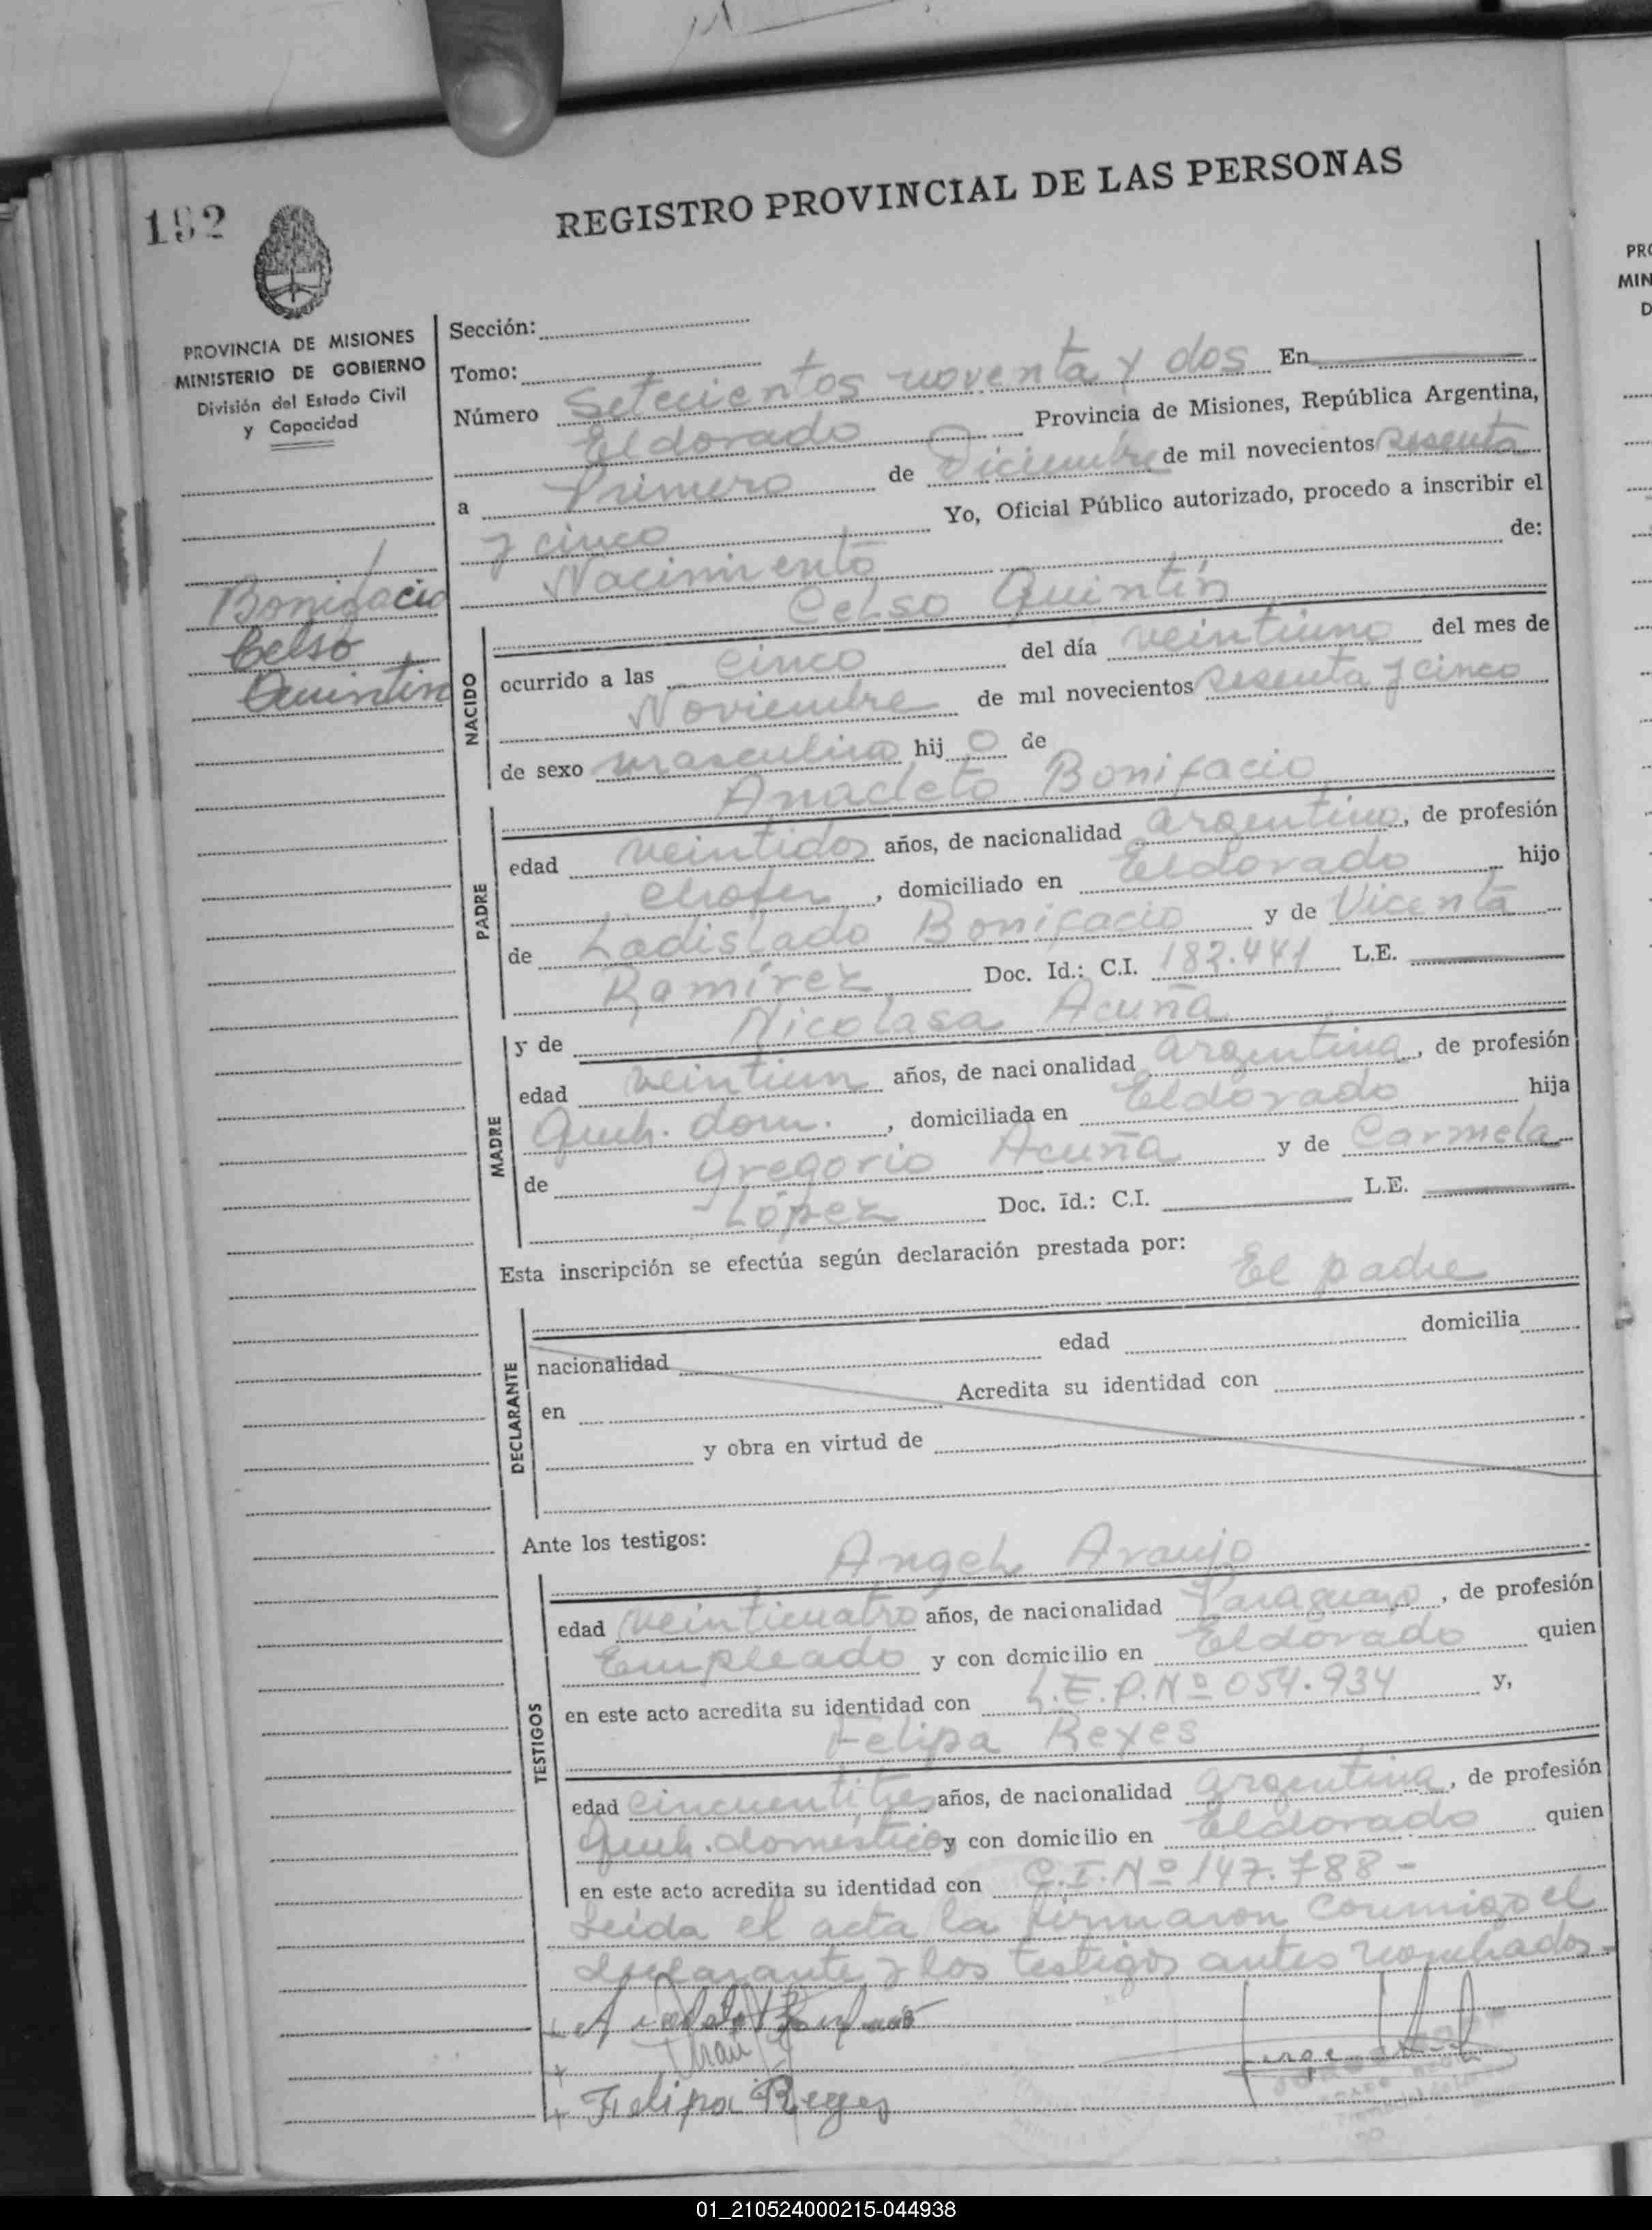 REGISTRO PROVINCIAL DE LAS PERSONAS
192
PROVINCIA DE MISIONES
MINISTERIO DE GOBIERNO
División del Estado Civil
y Capacidad
Bonifacio
Celso
Quintin
Sección:
Tomo:
Número Setecientos noventa y dos En
Eldorado Provincia de Misiones, República Argentina,
a Primero de Diciembre de mil novecientos sesenta
y cinco Yo, Oficial Público autorizado, procedo a inscribir el
Nacimiento de:
Celso Quintín
NACIDO
ocurrido a las cinco del día veintiuno del mes de
Noviembre de mil novecientos sesenta y cinco
de sexo masculino hij o de
Anacleto Bonifacio
PADRE
edad veintidos años, de nacionalidad argentino, de profesión
chofer, domiciliado en Eldorado hijo
de Ladislado Bonifacio y de Vicenta
Ramírez Doc. Id.: C.I. 182.441 L.E.
y de Nicolasa Acuña
MADRE
edad veintiun años, de nacionalidad argentina, de profesión
Queh. dom., domiciliada en Eldorado hija
de Gregorio Acuña y de Carmela
López Doc. Id.: C.I. L.E.
Esta inscripción se efectúa según declaración prestada por:
El padre
DECLARANTE
nacionalidad edad domicilia
en Acredita su identidad con
y obra en virtud de
Ante los testigos:
Angel Araujo
TESTIGOS
edad veinticuatro años, de nacionalidad Paraguayo, de profesión
Empleado y con domicilio en Eldorado quien
en este acto acredita su identidad con L.E.P.Nº 054.934 y,
Felipa Reyes
edad cincuentitres años, de nacionalidad argentina, de profesión
Queh. domésticos y con domicilio en Eldorado quien
en este acto acredita su identidad con C.I.Nº 147.788-
Leída el acta la firmaron conmigo el
declarante y los testigos antes nombrados.-
Felipa Reyes
PRO
MIN
D
01_210524000215-044938